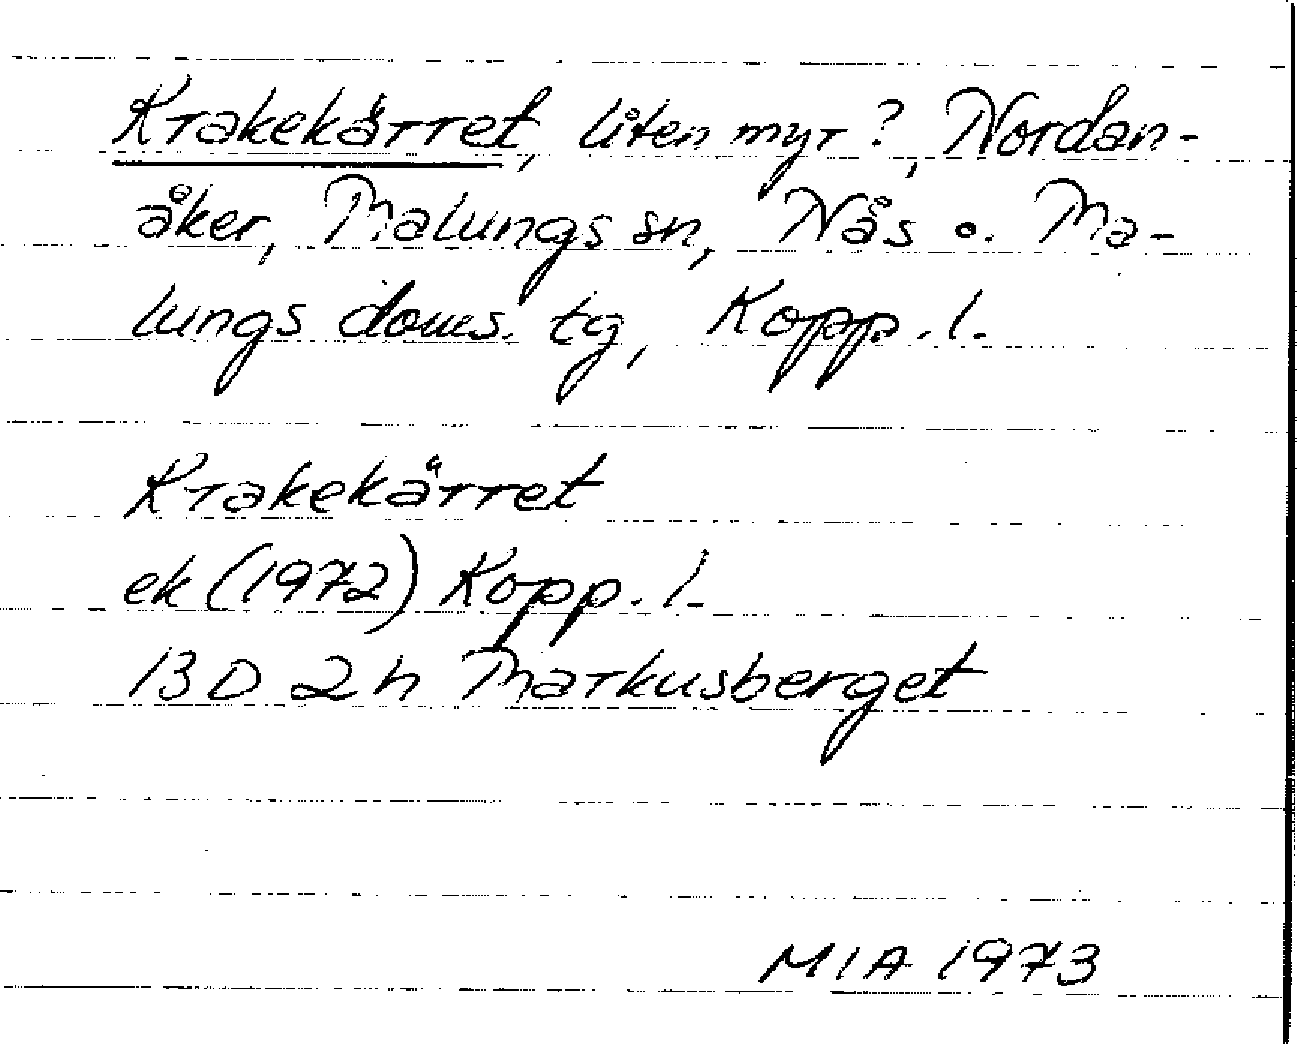 Krakekärret, liten myr?, Nordan-
åker, Malungs sn, Nås o. Ma-
lungs doms. tg, Kopp. l.
Krakekärret
ek (1972) Kopp. l.
13 D 2 h Markusberget
MIA 1973